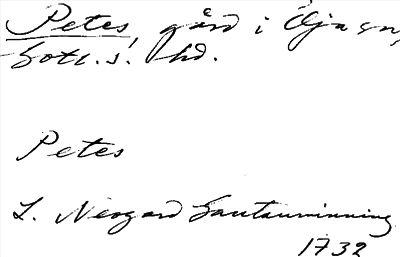 Petes, gård i Öja sn,
Gotl. s. hd.
Petes
L. Nergard Gautauminning
1732